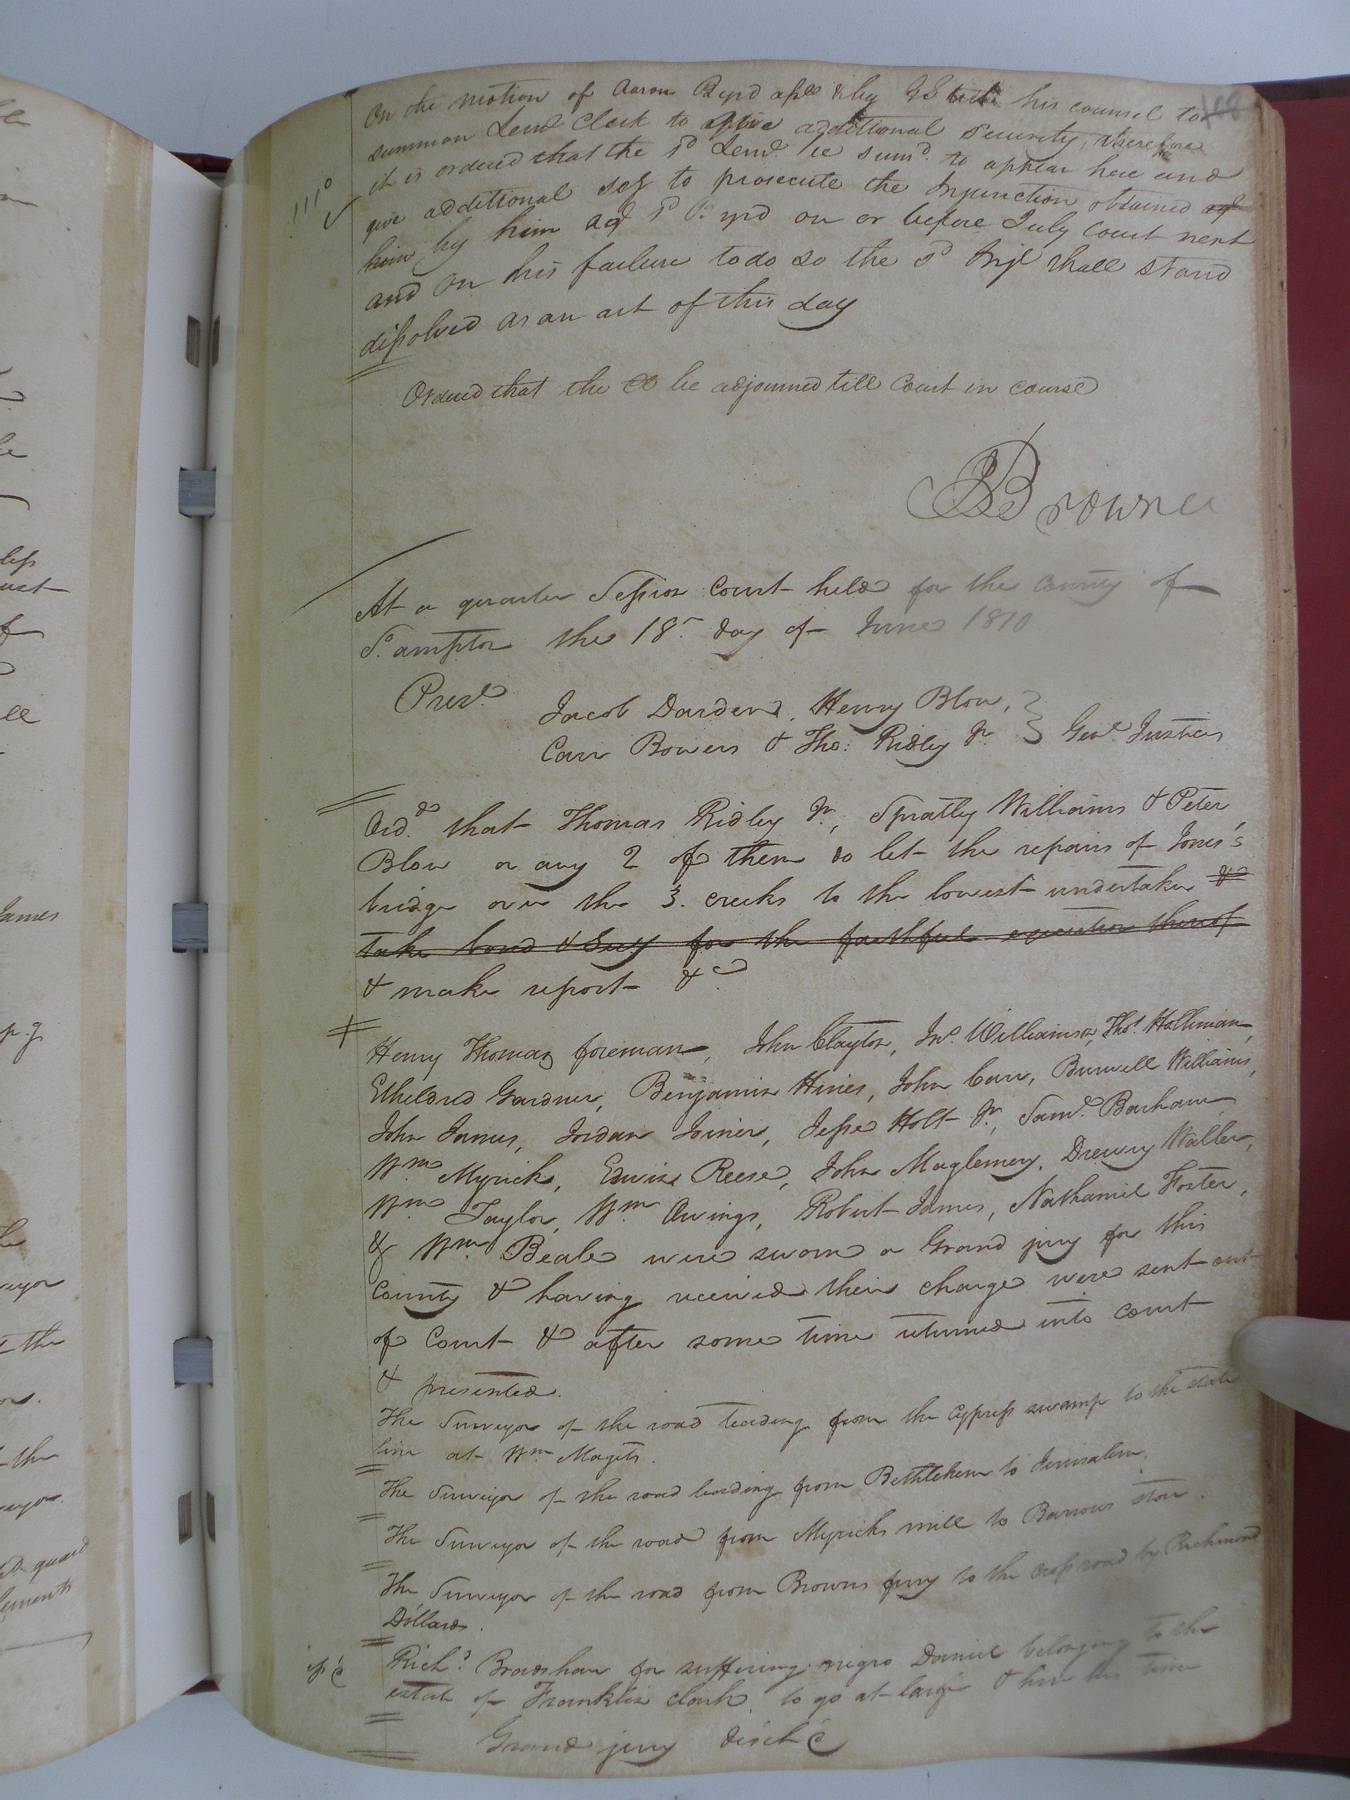 On the motion of Aaron Byrd apld & by his counsel to
summon Lemd Clark to give additional security, therefore
it is ordered that the sd Lemd be sumd to appear here and
give additional scy to prosecute the Injunction obtained agt
him by him agt sd Byrd on or before July Court next
and on his failure to do so the sd Inj shall stand
dissolved as an act of this day
Ordered that the Co be adjourned till Court in course
Browne
At a quarter Session Court held for the County of
So ampton the 18 day of June 1810
Presd
Jacob Darden, Henry Blow,
Carr Bowers & Tho: Ridley Jr Gent Justices
Ord that Thomas Ridley Jr, Spratly Williams & Peter
Blow or any 2 of them do let the repairs of Jones's
bridge over the 3. creeks to the lowest undertaker &
take bond & Secy for the faithful execution thereof
& make report &c
Henry Thomas foreman, John Clayton, Jno Williamson, Thos Holliman,
Etheldred Gardner, Benjamin Hines, John Carr, Burwell Williams,
John James, Jordan Joiner, Jesse Holt Jr, Saml Barham
Wm Myrick, Edwin Reese, John Maglemery, Drewry Waller,
Wm Taylor, Wm Owings, Robert James, Nathaniel Foster,
& Wm Beale were sworn a Grand jury for this
County & having received their charge were sent out
of Court & after some time returned into court
& presented.
The Surveyor of the road leading from the Cypress swamp to the state
line at Wm Magets.
The Surveyor of the road leading from Bethlehem to Jerusalem.
The Surveyor of the road from Myricks mill to Barrows store.
The Surveyor of the road from Browns ferry to the cross road by Richmond
Dillards.
Richd Bradshaw for suffering negro Daniel belonging to the
estate of Franklin Clark to go at large & hire his time
Grand jury disch'd